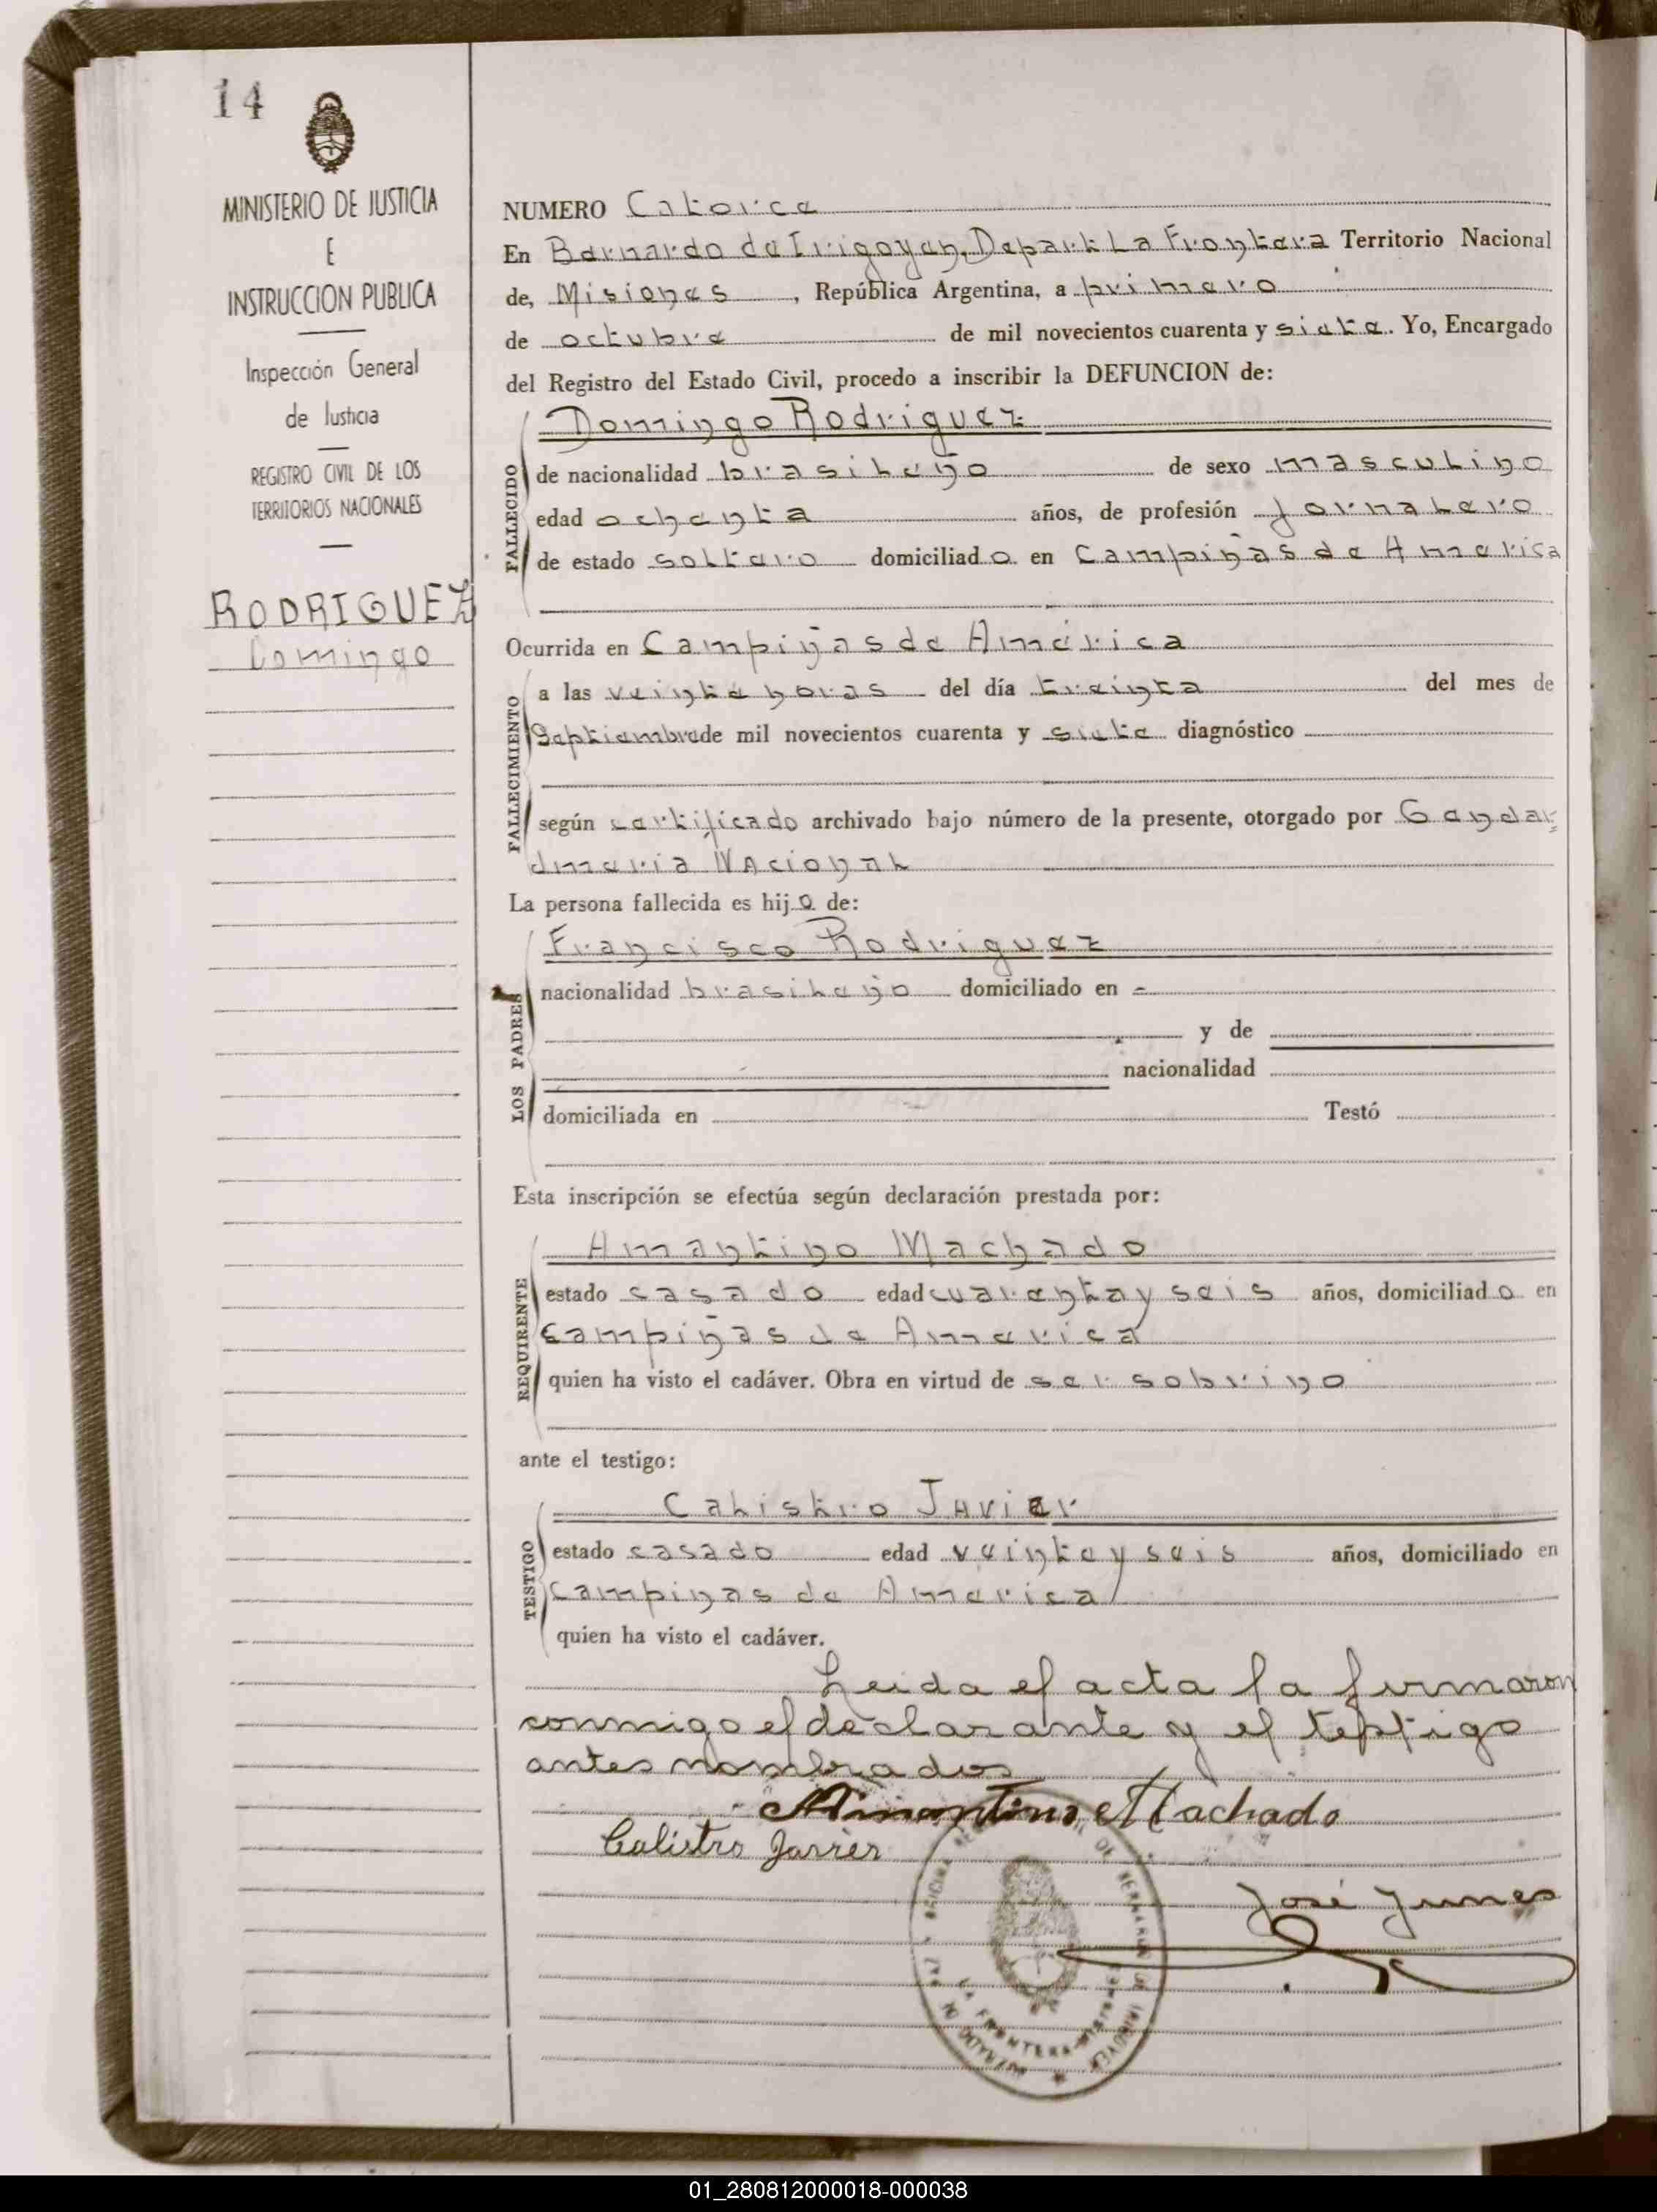 14
MINISTERIO DE JUSTICIA
E
INSTRUCCION PUBLICA
Inspección General
de Justicia
REGISTRO CIVIL DE LOS
TERRITORIOS NACIONALES
RODRIGUEZ
Domingo
NUMERO Catorce
En Bernardo de Irigoyen, Depart. La Frontera Territorio Nacional
de, Misiones, República Argentina, a primero
de octubre de mil novecientos cuarenta y siete. Yo, Encargado
del Registro del Estado Civil, procedo a inscribir la DEFUNCION de:
Domingo Rodriguez
FALLECIDO
de nacionalidad brasileño de sexo masculino
edad ochenta años, de profesión jornalero
de estado soltero domiciliado en Campiñas de America
Ocurrida en Campiñas de América
FALLECIMIENTO
a las veinte horas del día treinta del mes de
Septiembre de mil novecientos cuarenta y siete diagnóstico
según certificado archivado bajo número de la presente, otorgado por Gendar
dmeria Nacional
La persona fallecida es hijo de:
Francisco Rodriguez
LOS PADRES
nacionalidad brasileño domiciliado en -
y de
nacionalidad
domiciliada en Testó
Esta inscripción se efectúa según declaración prestada por:
Amantino Machado
REQUIRENTE
estado casado edad cuarenta y seis años, domiciliado en
campiñas de America
quien ha visto el cadáver. Obra en virtud de ser sobrino
ante el testigo:
Calistro Javier
TESTIGO
estado casado edad veinte y seis años, domiciliado en
campinas de America
quien ha visto el cadáver.
Leida el acta la firmaron
conmigo el declarante y el testigo
antes nombrados
Amantino Machado
Calistro Javier
José Junes
LA FRONTERA-MISIONES
01_280812000018-000038